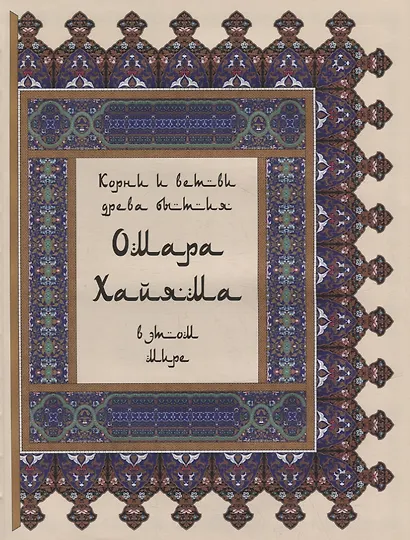 Корни и ветви
древа бытия
Омара
Хайяма
в этом
мире